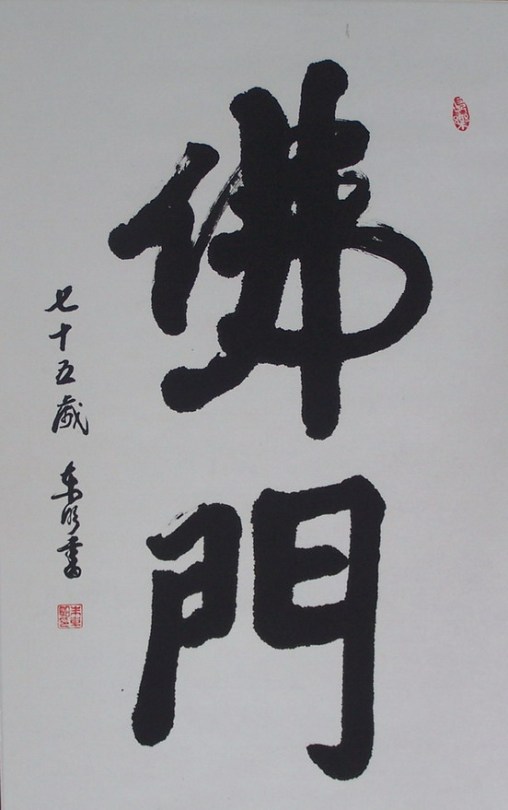 佛門
七十五歲 東明書